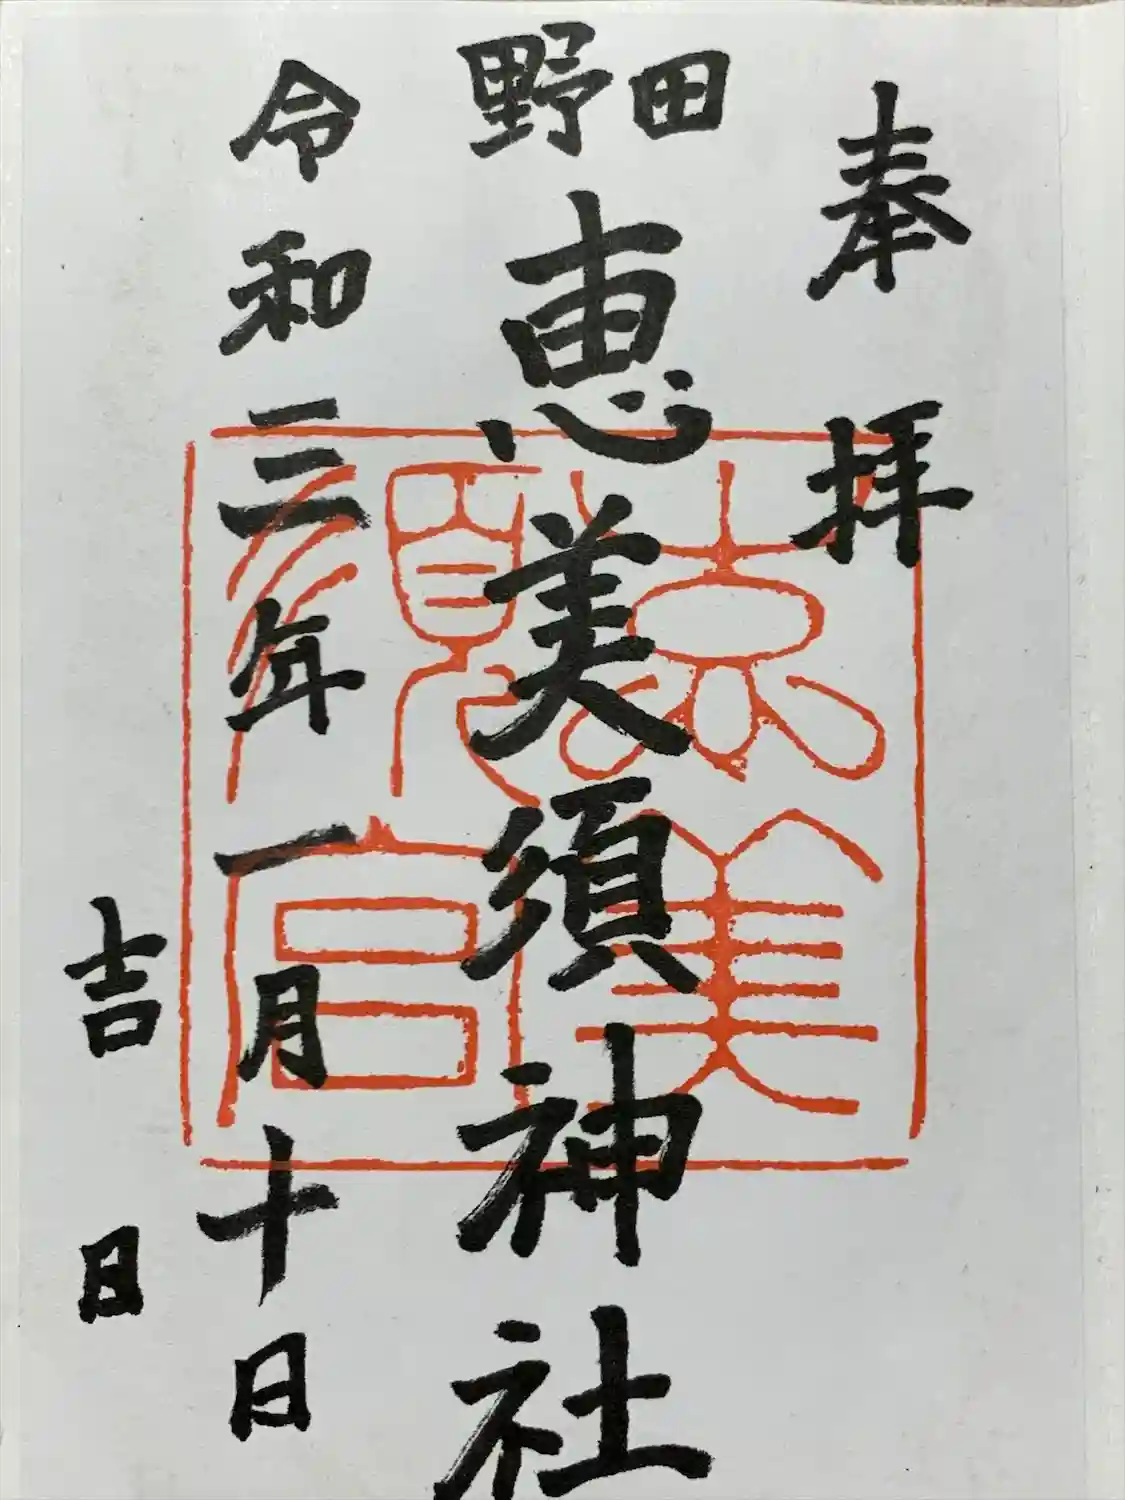 奉拝
野田
恵美須神社
令和三年一月十日
吉日
恵美須宮